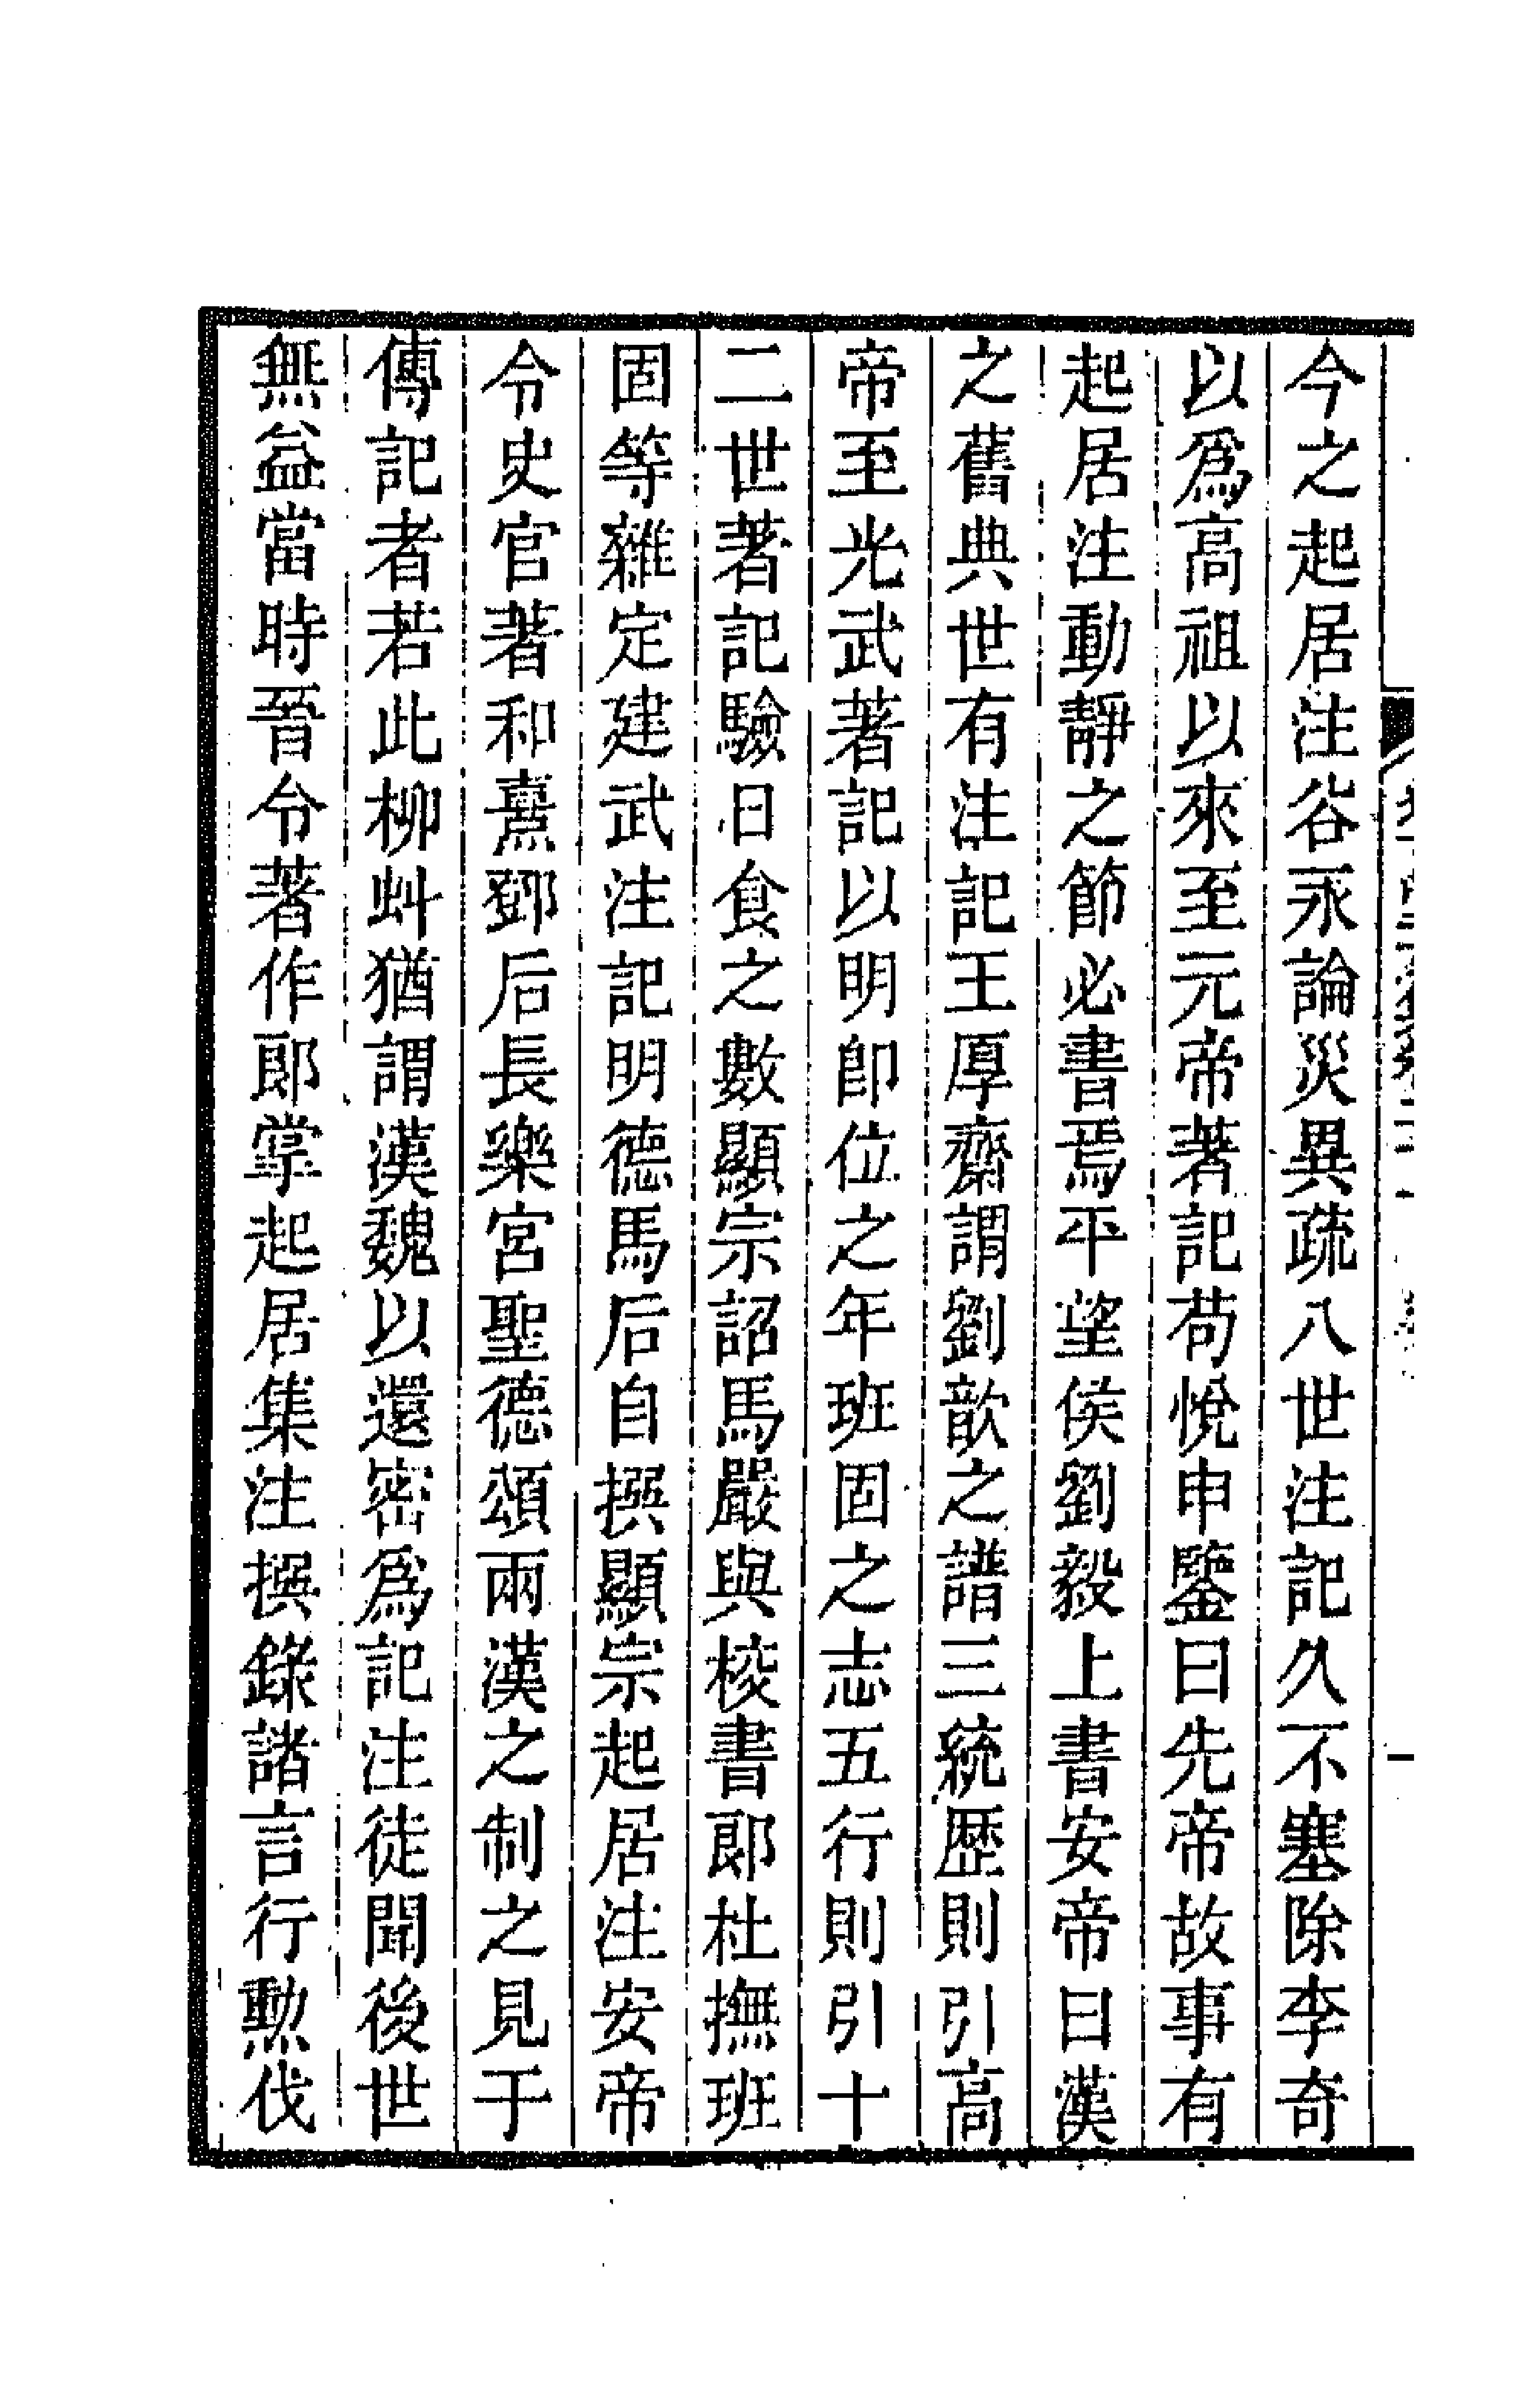 今之起居注谷永論災異疏八世注記久不塞除李奇
以爲高祖以來至元帝著記荀悅申鑒曰先帝故事有
起居注動靜之節必書焉平望侯劉毅上書安帝曰漢
之舊典世有注記王厚齋謂劉歆之譜三統歷則引高
帝至光武著記以明卽位之年班固之志五行則引十
二世著記驗日食之數顯宗詔馬嚴與校書郞杜撫班
固等雜定建武注記明德馬后自撰顯宗起居注安帝
令史官著和熹鄧后長樂宮聖德頌兩漢之制之見于
傳記者若此柳虯猶謂漢魏以還密爲記注徒聞後世
無益當時晉令著作郞掌起居集注撰錄諸言行勲伐